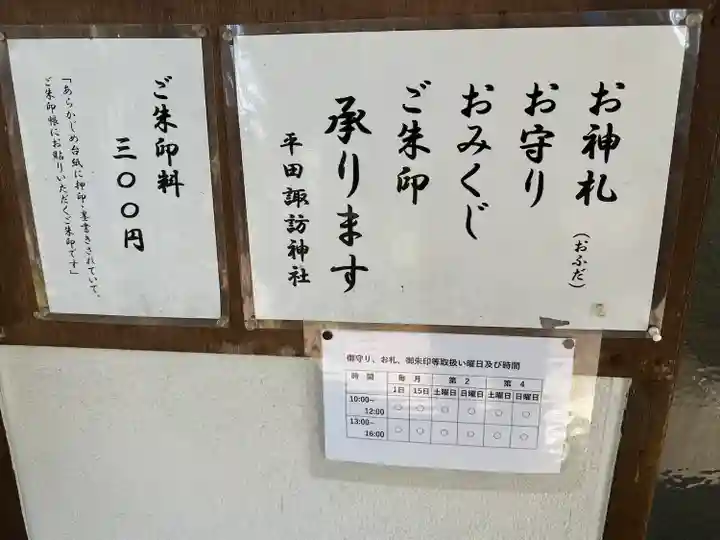 お神札(おふだ)
お守り
おみくじ
ご朱印
承ります
平田諏訪神社
ご朱印料
三〇〇円
「あらかじめ台紙に押印・墨書きされていて、
ご朱印帳にお貼りいただくご朱印です」
御守り、お札、御朱印等取扱い曜日及び時間
時間 毎月 第2 第4
1日 15日 土曜日 日曜日 土曜日 日曜日
10:00~12:00 ○ ○ ○ ○ ○ ○
13:00~16:00 ○ ○ ○ ○ ○ ○